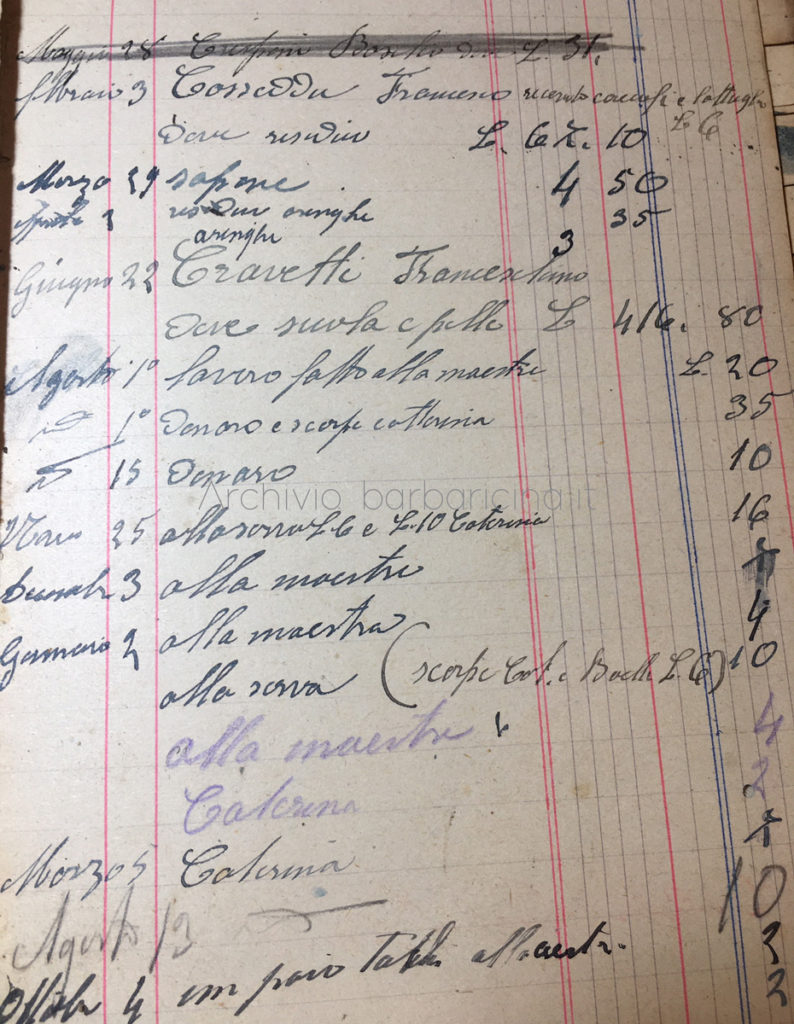 Maggio 28 Boscho L. 31.
febraio 3 Cosseddu Francesco ricevuto carciofi e lattughe
L 6
Deve residuo L. 67. 10
Marzo 29 sapone 4 50
residuo aringhe 35
aringhe 3
Giugno 22 Cravetti
Deve suola e pelle L 416. 80
Agosto 1° lavoro fatto alla maestra L. 20
id 1° Denaro e scarpe catterina 35
id 15 Denaro 10
25 alla serva L 6 e L. 10 Caterina 16
3 alla maestra
Gennaio 2 alla maestra 4
alla serva (scarpe Cat. e L. 6) 10
alla maestra 4
Caterina 2
Marzo 5 Caterina
Agosto 13 10
3
Ottobre 4 un paio 2
Archivio barbaricina.it